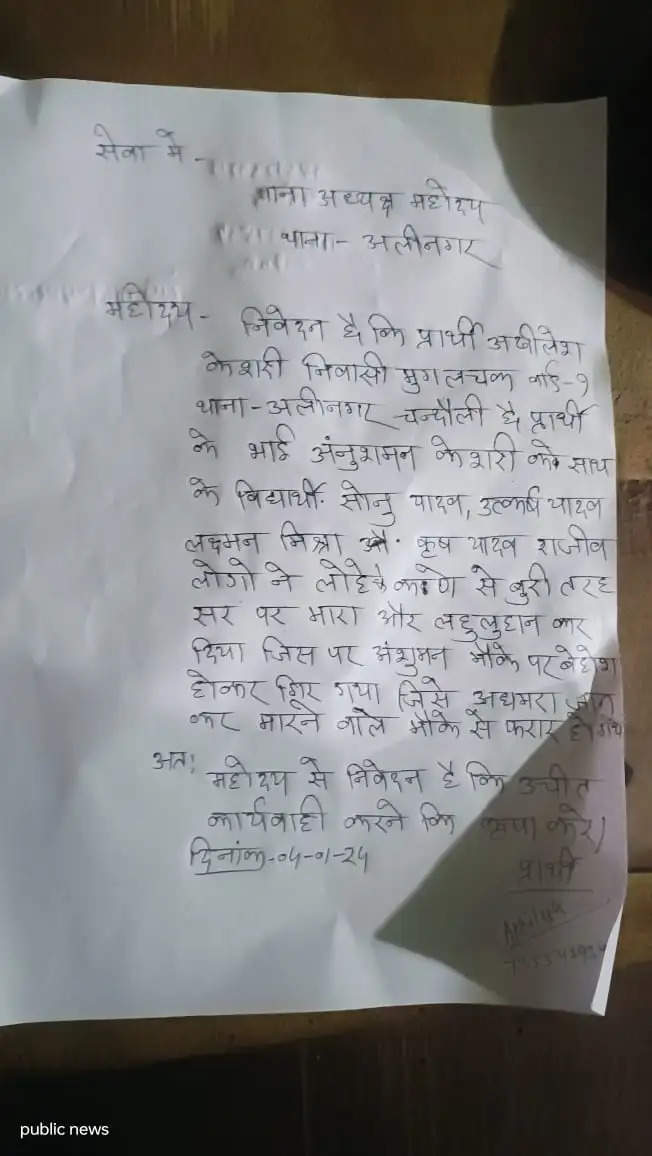 सेवा में -
थाना अध्यक्ष महोदय
थाना - अलीनगर
महोदय - निवेदन है कि प्रार्थी अखीलेश
केशरी निवासी मुगलचक वार्ड-9
थाना - अलीनगर चन्दौली है प्रार्थी
के भाई अंनुशमन केशरी को साथ
के विद्यार्थी सोनु यादव, उत्कर्ष यादव
लक्ष्मन मिश्रा औ. कृष यादव राजीव
लोगो ने लोहे के से बुरी तरह
सर पर मारा और लहुलुहान कर
दिया जिस पर अंशुमन मौके पर बेहोश
होकर गिर गया जिसे अधमरा जान
कर मारने वाले मौके से फरार हो गये
अतः महोदय से निवेदन है कि उचीत
कार्यवाही करने कि कृपा करे।
दिनांक-04-01-24
प्रार्थी
public news